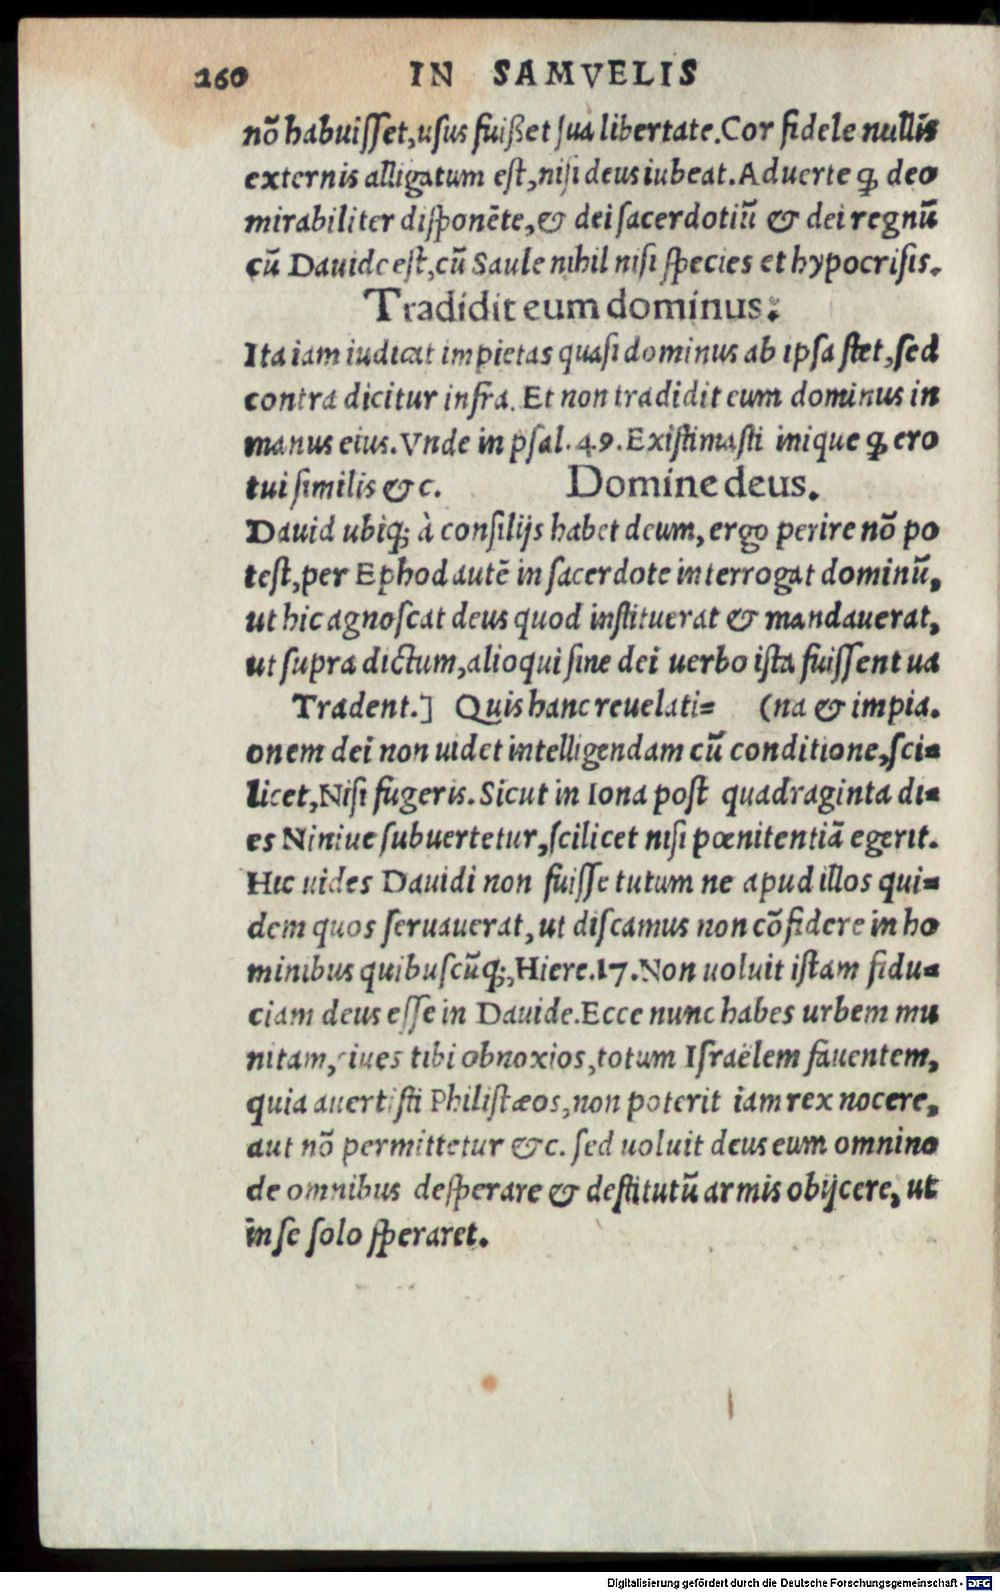 260 IN SAMVELIS
nõ habuisset, usus fuißet sua libertate. Cor fidele nullis
externis alligatum est, nisi deus iubeat. Aduerte ꝙ deo
mirabiliter disponẽte, & dei sacerdotiũ & dei regnũ
cũ Dauide est, cũ Saule nihil nisi species et hypocrisis.
Tradidit eum dominus.
Ita iam iudicat impietas quasi dominus ab ipsa stet, sed
contra dicitur infra. Et non tradidit eum dominus in
manus eius. Vnde in psal. 49. Existimasti inique ꝙ ero
tui similis &c. Domine deus.
Dauid ubiq; à consilijs habet deum, ergo perire nõ po
test, per Ephod autẽ in sacerdote interrogat dominũ,
ut hic agnoscat deus quod instituerat & mandauerat,
ut supra dictum, alioqui sine dei uerbo ista fuissent ua
Tradent.] Quis hanc reuelati= (na & impia.
onem dei non uidet intelligendam cũ conditione, sci=
licet, Nisi fugeris. Sicut in Iona post quadraginta di=
es Niniue subuertetur, scilicet nisi pœnitentiã egerit.
Hic uides Dauidi non fuisse tutum ne apud illos qui=
dem quos seruauerat, ut discamus non cõfidere in ho
minibus quibuscũq;, Hiere. 17. Non uoluit istam fidu=
ciam deus esse in Dauide. Ecce nunc habes urbem mu
nitam, ciues tibi obnoxios, totum Israëlem fauentem,
quia auertisti Philistæos, non poterit iam rex nocere,
aut nõ permittetur &c. sed uoluit deus eum omnino
de omnibus desperare & destitutũ armis obijcere, ut
in se solo speraret.
Digitalisierung gefördert durch die Deutsche Forschungsgemeinschaft - DFG